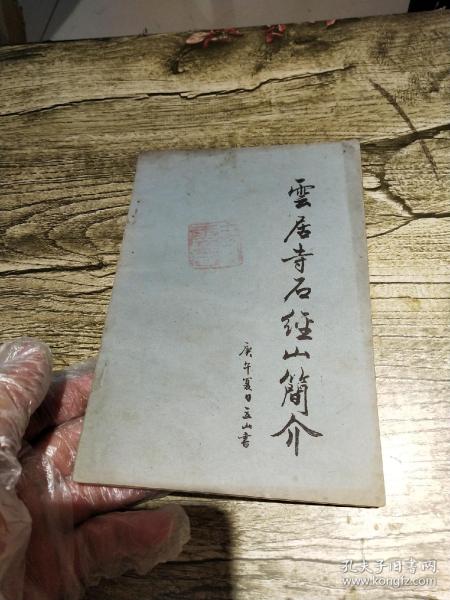 雲居寺石經山簡介
庚午夏日五山書
孔夫子旧书网
www.kongfz.com